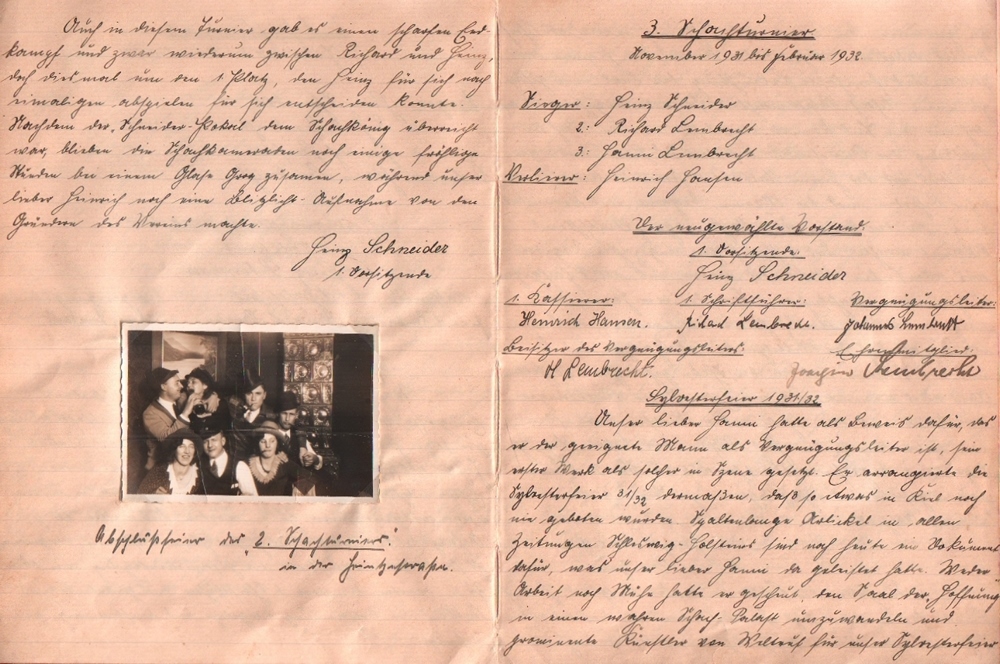 Auch in diesem Turnier gab es einen scharfen End-
kampf und zwar wiederum zwischen Richard und Heinz,
doch diesmal um den 1 Platz, den Heinz für sich nach
einmaligen abspielen für sich entscheiden konnte.
Nachdem der Schneider-Pokal dem Schachkönig überreicht
war, blieben die Schachkameraden noch einige fröhliche
Stunden bei einem Glase Grog zusamen, während unser
lieber Heinrich noch eine Blitzlicht-Aufnahme von den
Gründern des Vereins machte.
Heinz Schneider
1. Vorsitzende
Abschlussfeier des "2. Schachturniers"
in der
3. Schachturnier
November 1931 bis Februar 1932
Sieger: Heinz Schneider
2: Richard Lembrecht
3: Hanni Lembrecht
Verlierer: Heinrich Hansen
Der neugewählte Vorstand
1. Vorsitzende.
Heinz Schneider
1. Kassierer: 1 Schriftführer: Vergnügungsleiter:
Heinrich Hansen. Richard Lembrecht. Johannes Lembrecht
Beisitzer des Vergnügungsleiters. Ehrenmitglied:
H Lembrecht. Joachim Lembrecht
Sylvesterfeier 1931/32
Unser lieber Hanni hatte als Beweis dafür, das
er der geeignete Mann als Vergnügungsleiter ist, sein
erster Werk als solcher in Szene gesetzt. Er arrangierte die
Sylvesterfeier 31/32 dermaßen, daß so etwas in Kiel noch
nie geboten wurden. Spaltenlange Artickel in allen
Zeitungen Schleswig-Holsteins sind noch heute ein Dokument
dafür, was unser lieber Hanni da geleistet hatte. Weder
Arbeit noch Mühe hatte er gescheut, den Saal der "Hoffnung
in einen wahren Schach-Palast umzuwandeln und
prominente Künstler von Weltruf für unser Sylvesterfeier